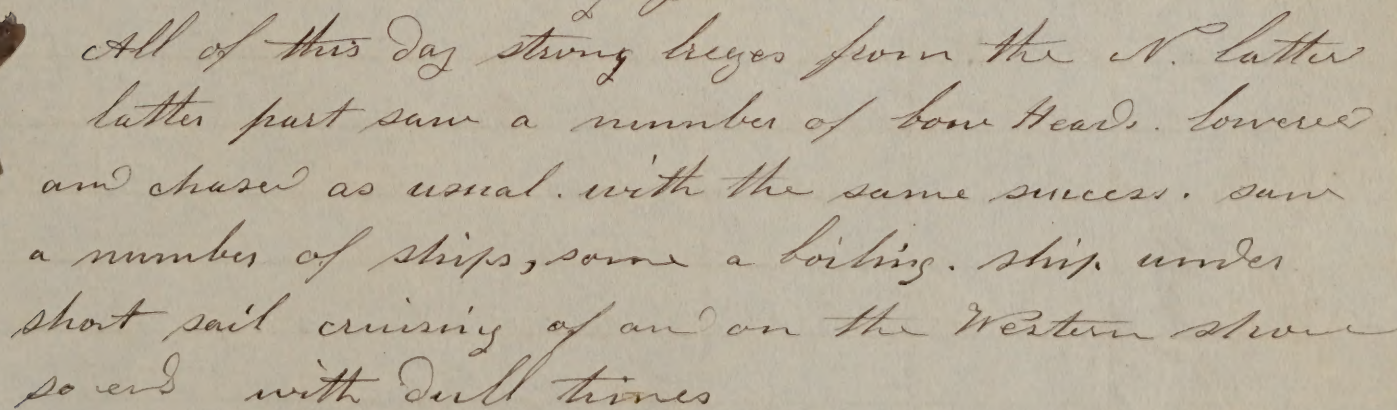 All of this Day strong breezes from the N. latter
latter part saw a number of bow Heads. lowered
and chased as usual. with the same success. saw
a number of ships, some a boiling. ship under
short sail cruising of and on the Western shore
so end with dull times